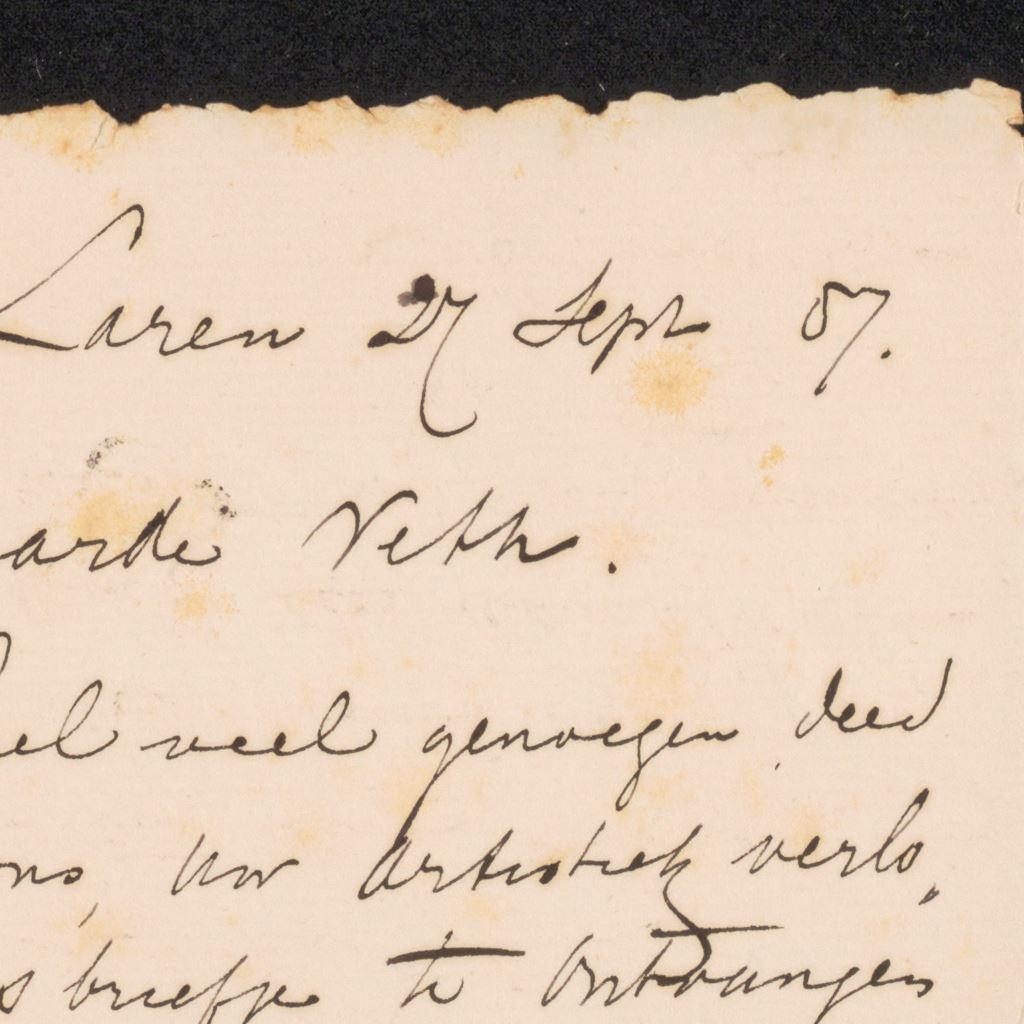 Laren 27 Sept 87.
aarde Veth.
eel veel genoegen deed
ons, Uw artistiek verlo,
s briefje te ontvangen